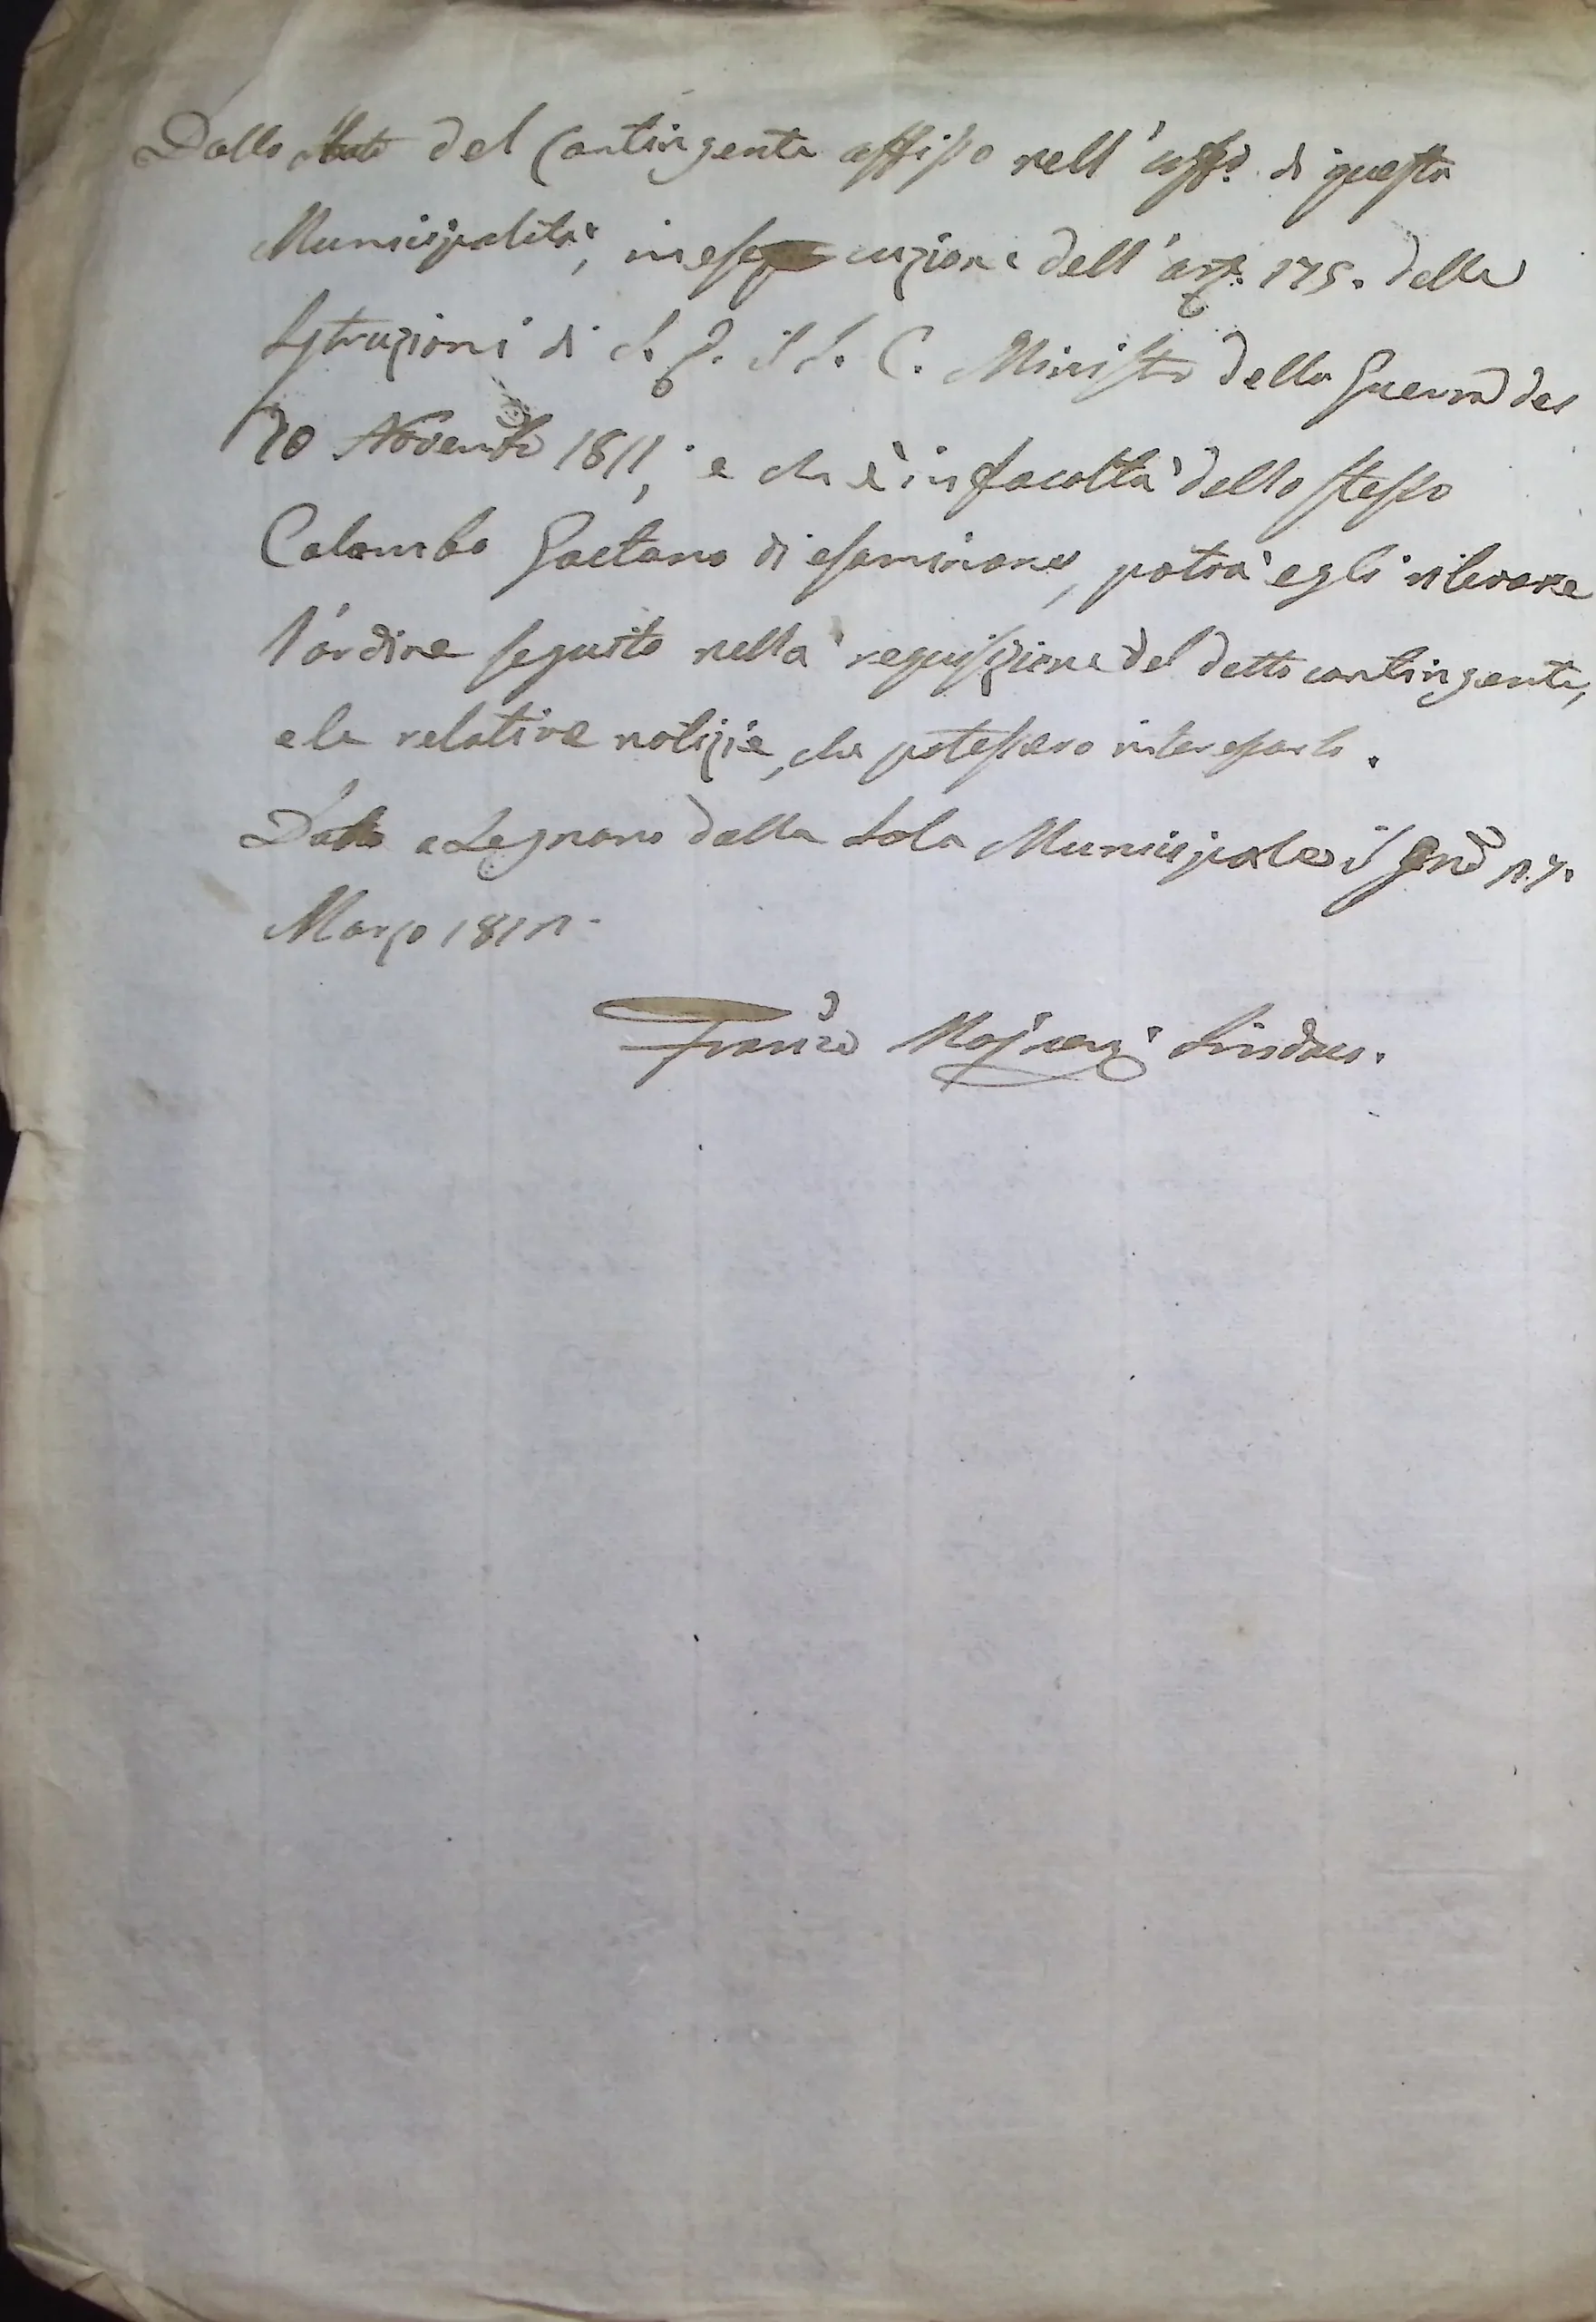 Dallo Stato del Contingente affisso nell'uffo. di questa
Municipalità, in esecuzione dell'art. 175. delle
Istruzioni di S. E. il S. C. Ministro della Guerra del
Novembre 1811, e che è in facoltà dello stesso
Colombo Gaetano di esaminare, potrà egli rilevare
l'ordine seguito nella requisizione del detto contingente,
e le relative notizie, che potessero interessarlo.
Dato a Legnano dalla Sala Municipale il
Marzo
Sindaco.